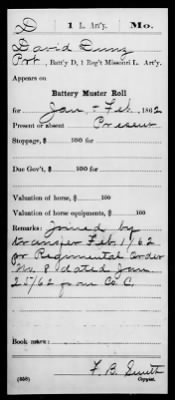 D 1 L. Art'y. Mo.
David Dunz
Pvt., Batt'y D, 1 Reg't Missouri L. Art'y.
Appears on
Battery Muster Roll
for Jan - Feb, 1862
Present or absent Present
Stoppage, $ 100 for
Due Gov't, $ 100 for
Valuation of horse, $ 100
Valuation of horse equipments, $ 100
Remarks: Joined by
transfer Feb 1/62
pr Regimental order
No. 8 dated Jan
25/62 from Co C.
Book mark:
F. B. Smith
(858) Copyist.